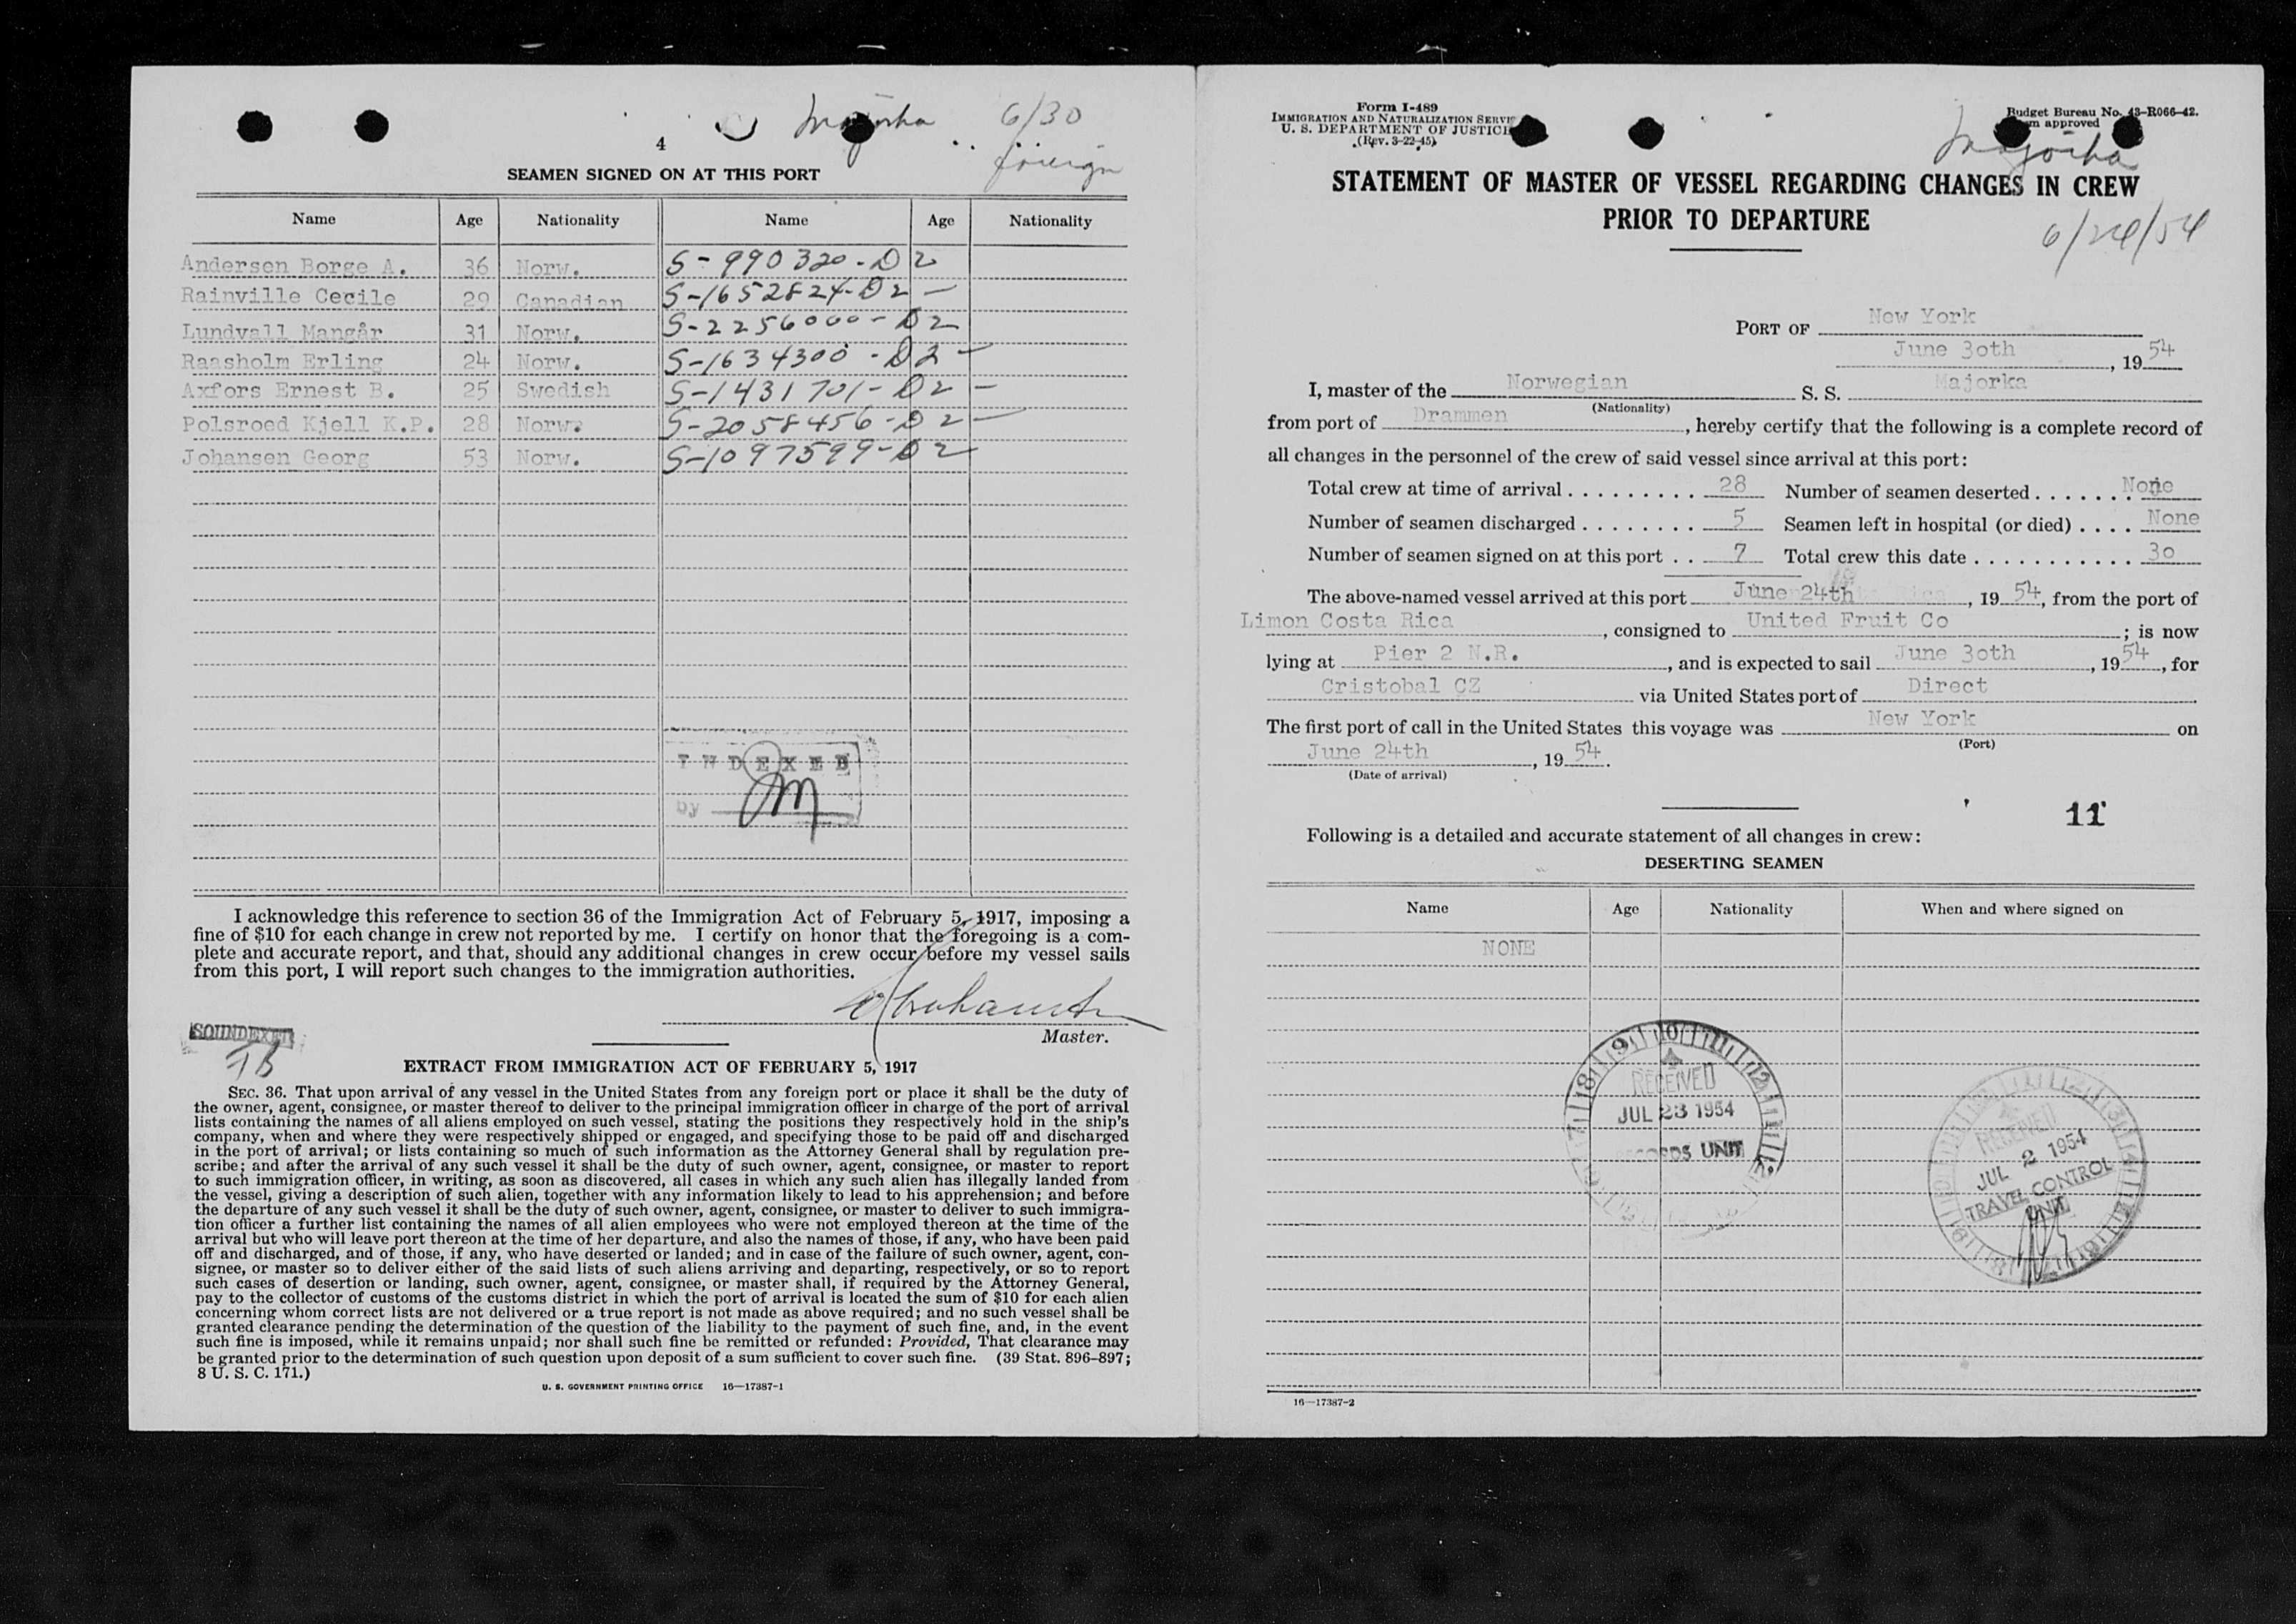 Majorka 6/30
4 foreign
SEAMEN SIGNED ON AT THIS PORT
Name Age Nationality Name Age Nationality
Andersen Borge A. 36 Norw. S-990320-D2
Rainville Cecile 29 Canadian S-1652824-D2 —
Lundvall Mangår 31 Norw. S-2256000-D2
Raasholm Erling 24 Norw. S-1634300-D2 —
Axfors Ernest B. 25 Swedish S-1431701-D2 —
Polsroed Kjell K.P. 28 Norw. S-2058456-D2 —
Johansen Georg 53 Norw. S-1097599-D2
INDEXED
by
I acknowledge this reference to section 36 of the Immigration Act of February 5, 1917, imposing a
fine of $10 for each change in crew not reported by me. I certify on honor that the foregoing is a com-
plete and accurate report, and that, should any additional changes in crew occur before my vessel sails
from this port, I will report such changes to the immigration authorities.
Master.
SOUNDEXED
EXTRACT FROM IMMIGRATION ACT OF FEBRUARY 5, 1917
SEC. 36. That upon arrival of any vessel in the United States from any foreign port or place it shall be the duty of
the owner, agent, consignee, or master thereof to deliver to the principal immigration officer in charge of the port of arrival
lists containing the names of all aliens employed on such vessel, stating the positions they respectively hold in the ship's
company, when and where they were respectively shipped or engaged, and specifying those to be paid off and discharged
in the port of arrival; or lists containing so much of such information as the Attorney General shall by regulation pre-
scribe; and after the arrival of any such vessel it shall be the duty of such owner, agent, consignee, or master to report
to such immigration officer, in writing, as soon as discovered, all cases in which any such alien has illegally landed from
the vessel, giving a description of such alien, together with any information likely to lead to his apprehension; and before
the departure of any such vessel it shall be the duty of such owner, agent, consignee, or master to deliver to such immigra-
tion officer a further list containing the names of all alien employees who were not employed thereon at the time of the
arrival but who will leave port thereon at the time of her departure, and also the names of those, if any, who have been paid
off and discharged, and of those, if any, who have deserted or landed; and in case of the failure of such owner, agent, con-
signee, or master so to deliver either of the said lists of such aliens arriving and departing, respectively, or so to report
such cases of desertion or landing, such owner, agent, consignee, or master shall, if required by the Attorney General,
pay to the collector of customs of the customs district in which the port of arrival is located the sum of $10 for each alien
concerning whom correct lists are not delivered or a true report is not made as above required; and no such vessel shall be
granted clearance pending the determination of the question of the liability to the payment of such fine, and, in the event
such fine is imposed, while it remains unpaid; nor shall such fine be remitted or refunded: Provided, That clearance may
be granted prior to the determination of such question upon deposit of a sum sufficient to cover such fine. (39 Stat. 896–897;
8 U. S. C. 171.)
U. S. GOVERNMENT PRINTING OFFICE 16—17387-1
Form I-489
IMMIGRATION AND NATURALIZATION SERVI
U. S. DEPARTMENT OF JUSTICE
(Rev. 3-22-45)
Budget Bureau No. 43-R066-42.
approved
Majorka
STATEMENT OF MASTER OF VESSEL REGARDING CHANGES IN CREW
PRIOR TO DEPARTURE
6/24/54
PORT OF New York
June 30th, 1954
I, master of the Norwegian S. S. Majorka
(Nationality)
from port of Drammen, hereby certify that the following is a complete record of
all changes in the personnel of the crew of said vessel since arrival at this port:
Total crew at time of arrival . . . . . . . . . 28 Number of seamen deserted . . . . . . . None
Number of seamen discharged . . . . . . . . 5 Seamen left in hospital (or died) . . . . None
Number of seamen signed on at this port . . 7 Total crew this date . . . . . . . . . . . 30
The above-named vessel arrived at this port June 24th, 1954, from the port of
Limon Costa Rica, consigned to United Fruit Co; is now
lying at Pier 2 N.R., and is expected to sail June 30th, 1954, for
Cristobal CZ via United States port of Direct
The first port of call in the United States this voyage was New York on
(Port)
June 24th, 1954.
(Date of arrival)
11
Following is a detailed and accurate statement of all changes in crew:
DESERTING SEAMEN
Name Age Nationality When and where signed on
NONE
RECEIVED
JUL 23 1954
UNIT
RECEIVED
JUL 2 1954
TRAVEL CONTROL
UNIT
16—17387-2